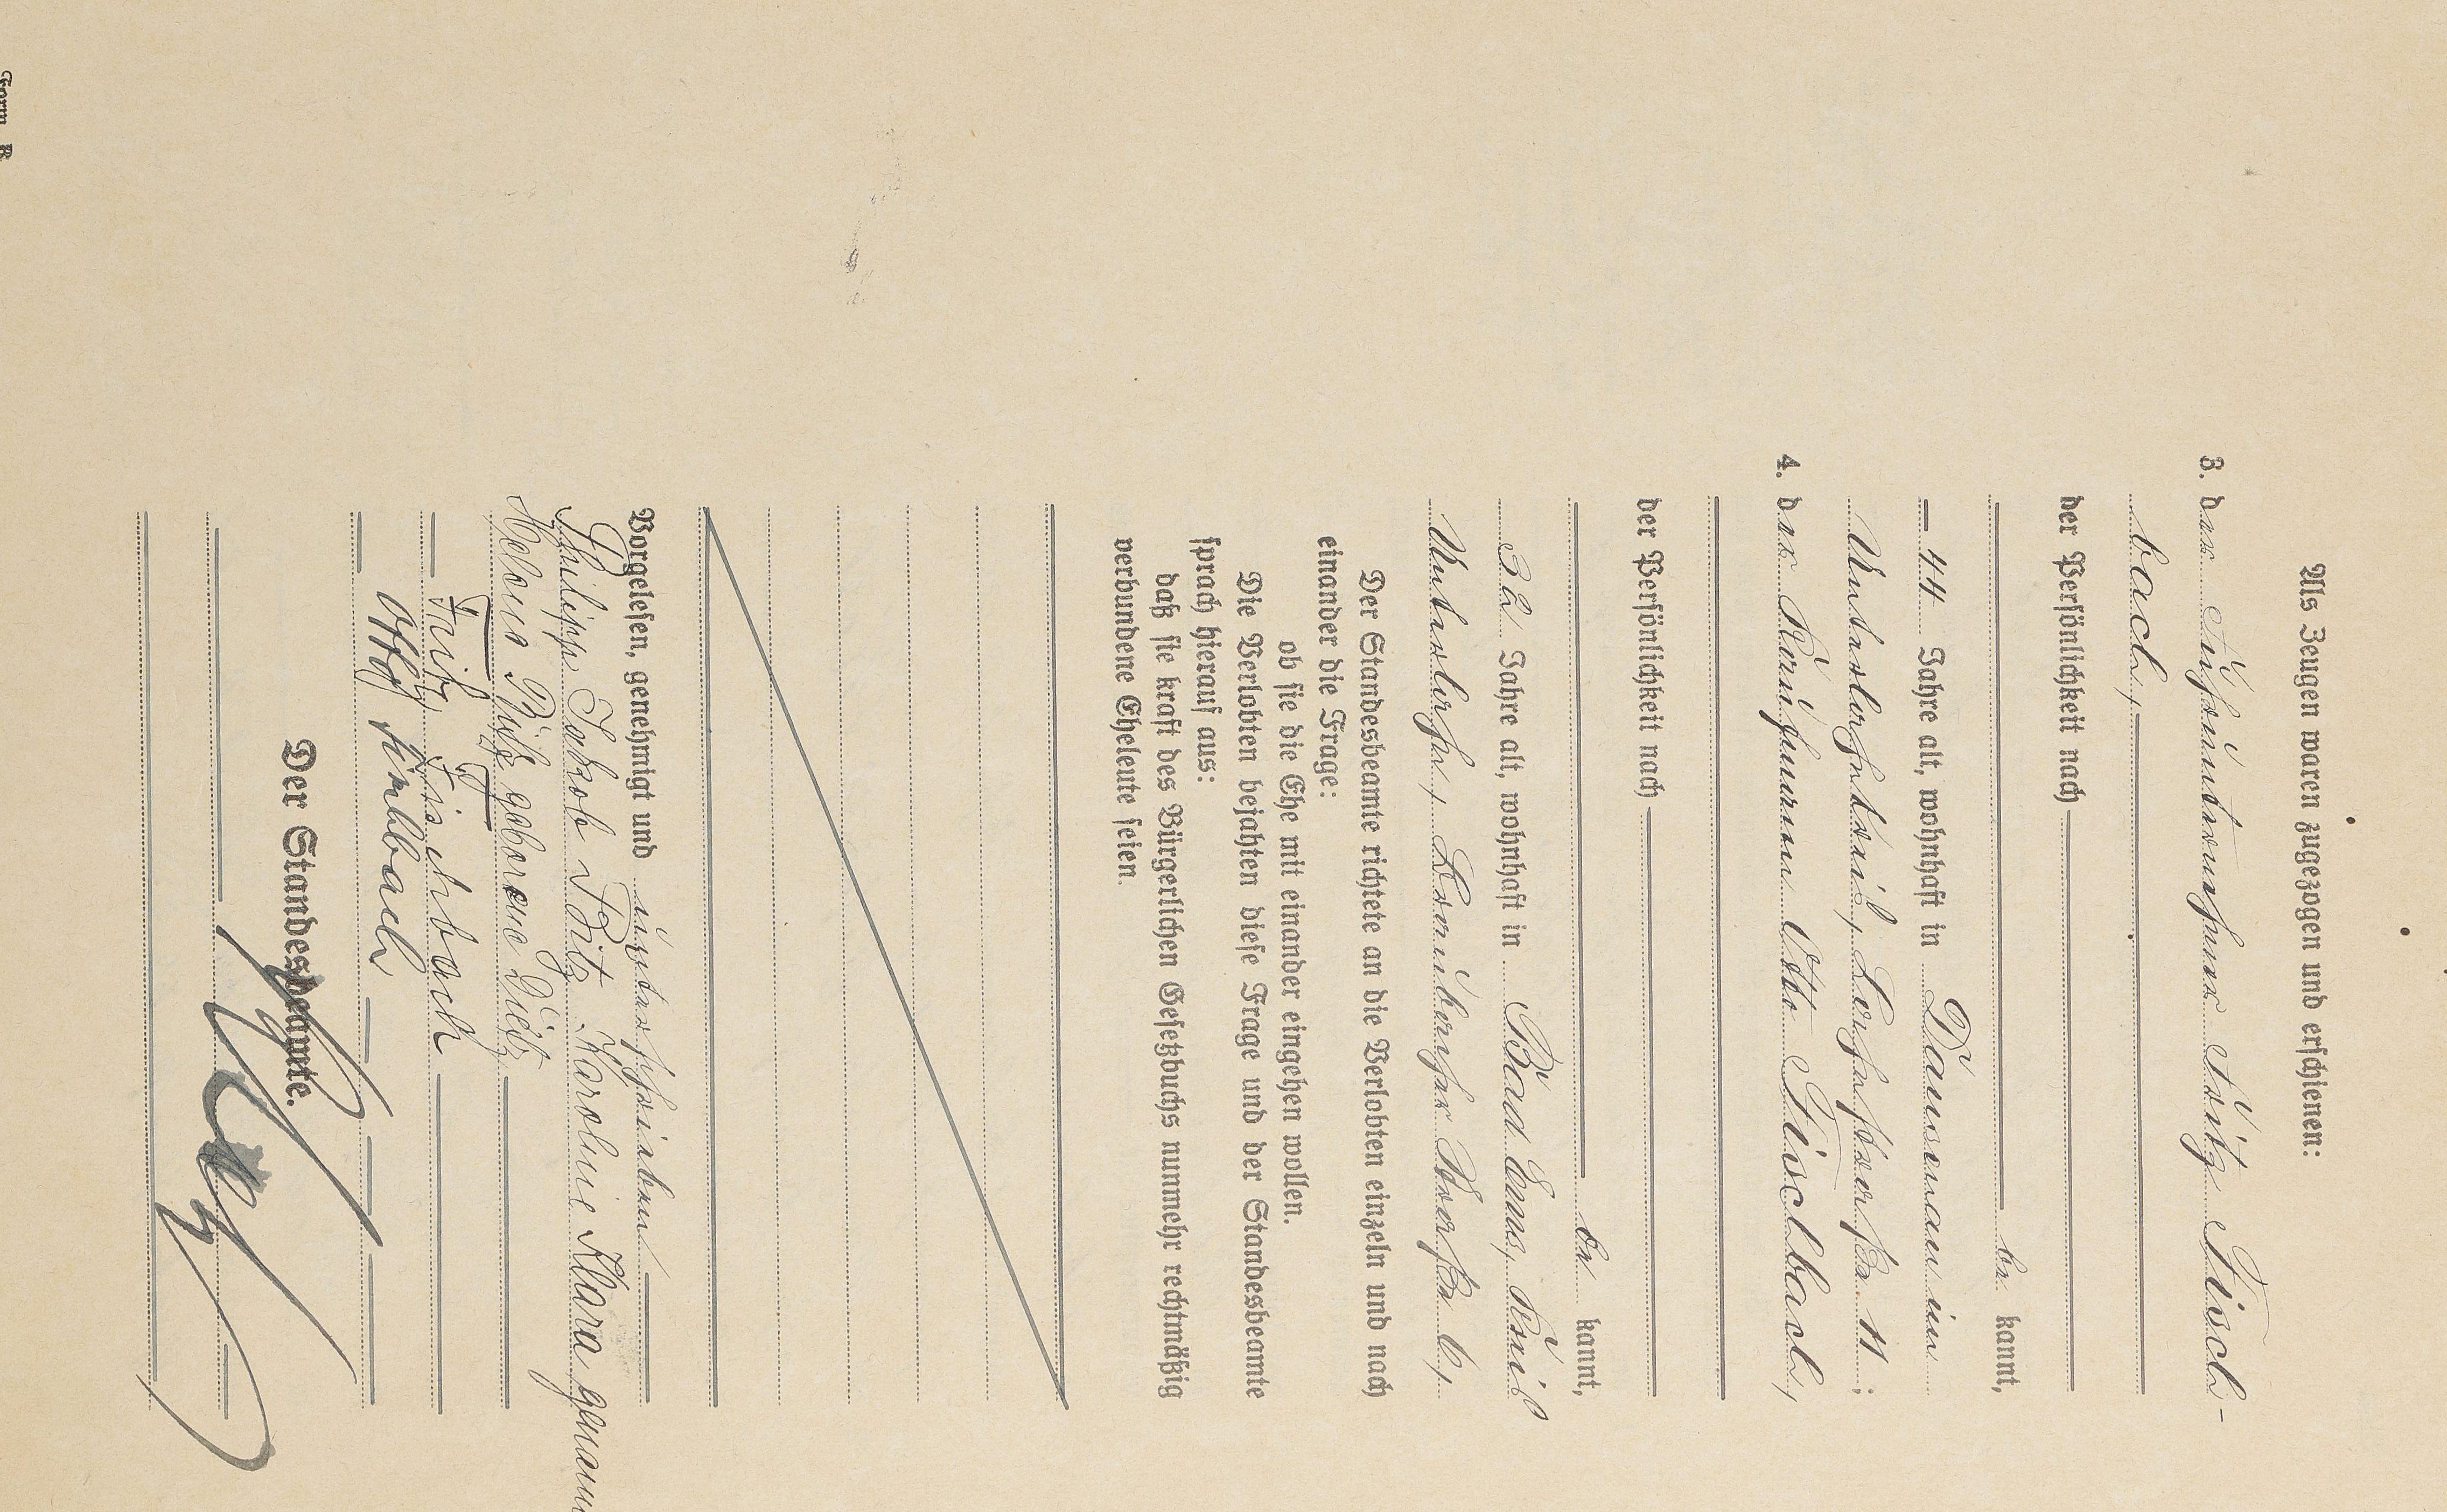 Als Zeugen waren zugezogen und erschienen:
3. der Fuhrunternehmer Fritz Fisch-
bach,
der Persönlichkeit nach
be kannt,
44 Jahre alt, wohnhaft in Dausenau im
Unterlahnkreis, Lahnstraße 11;
4. der Kaufmann Otto Fischbach,
der Persönlichkeit nach
be kannt,
32 Jahre alt, wohnhaft in Bad Ems, Kreis
Unterlahn, Straße 6,
Der Standesbeamte richtete an die Verlobten einzeln und nach
einander die Frage:
ob sie die Ehe mit einander eingehen wollen.
Die Verlobten bejahten diese Frage und der Standesbeamte
sprach hierauf aus:
daß sie kraft des Bürgerlichen Gesetzbuchs nunmehr rechtmäßig
verbundene Eheleute seien.
Vorgelesen, genehmigt und unterschrieben
Philipp Jakob Bitz Karoline Klara genannt
geborene
Fritz Fischbach
Otto Fischbach
Der Standesbeamte.
Form. B